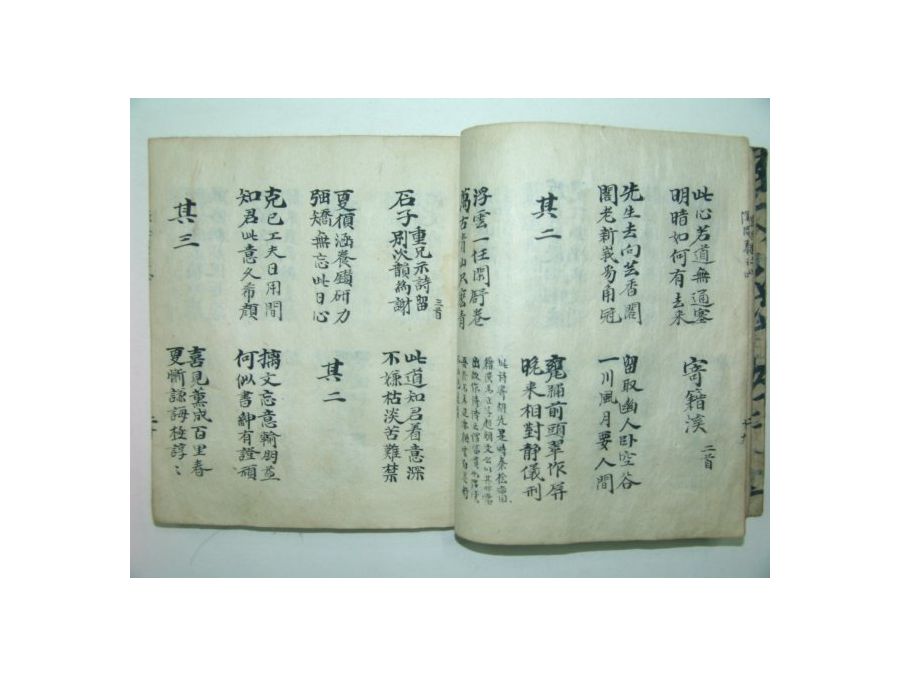 此心若道無通塞
明暗如何有去來
寄籍溪 二首
先生去向芸香閣
閣老新峩豸角冠
留取幽人卧空谷
一川風月要人間
其二
甕牖前頭翠作屏
晚來相對靜儀刑
浮雲一任閒舒卷
萬古青山只麽青
石子重兄示詩留別次韻爲謝 三首
此道知君着意深
不嫌枯淡苦難禁
更須涵養鑽硏力
强矯無忘此日心
其二
克已工夫日用間
知君此意久希顔
摛文忘意輸朋益
何似書紳有證頑
其三
喜見薰成百里春
更慚謙誨極諄〻